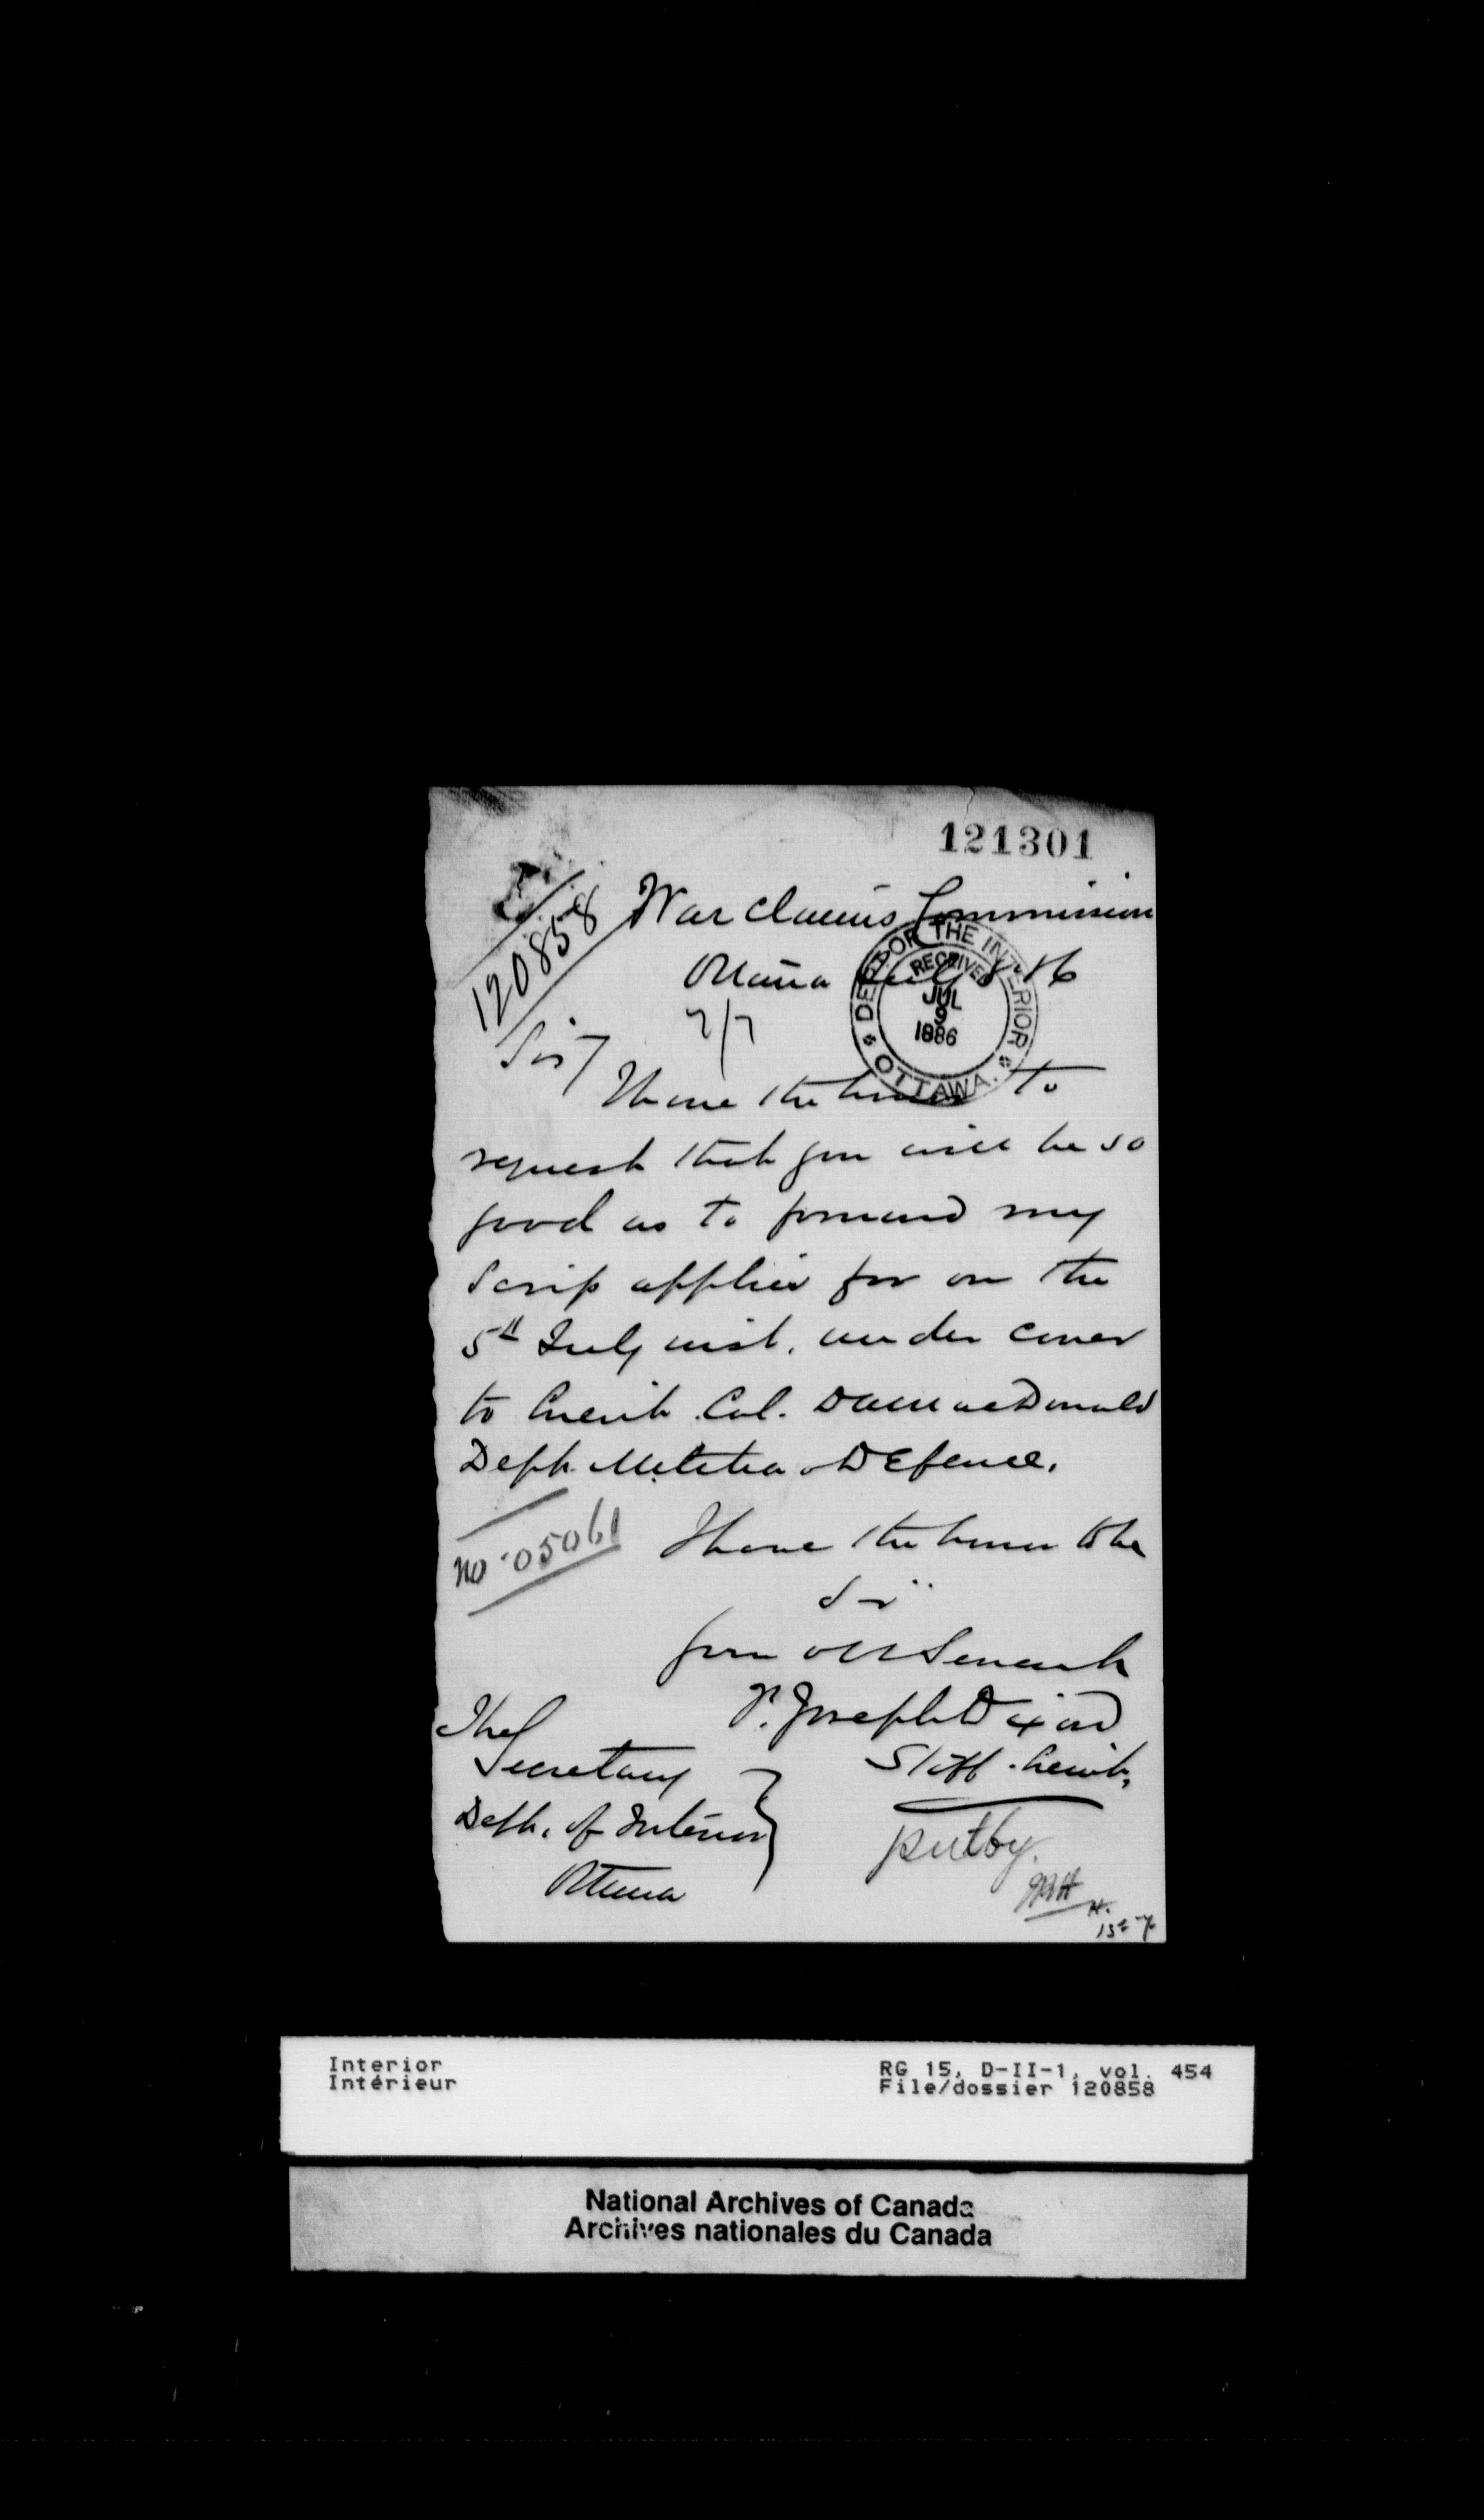 121301
120858
War Claims Commission
Ottawa July 8 86
DEPT. OF THE INTERIOR
RECEIVED
JUL
9
1886
OTTAWA.
7/7
Sir
I have the honor to
request that you will be so
good as to forward my
Scrip applied for on the
5th July inst. under cover
to Lieut. Col. MacDonald
Dept. Militia & Defence.
no. 05061
I have the honor to be
Sir
your Servant
Joseph
Staff. Lieut.
The
Secretary
Dept. of Interior
Ottawa
putby.
Interior
Intérieur
RG 15, D-II-1, vol. 454
File/dossier 120858
National Archives of Canada
Archives nationales du Canada